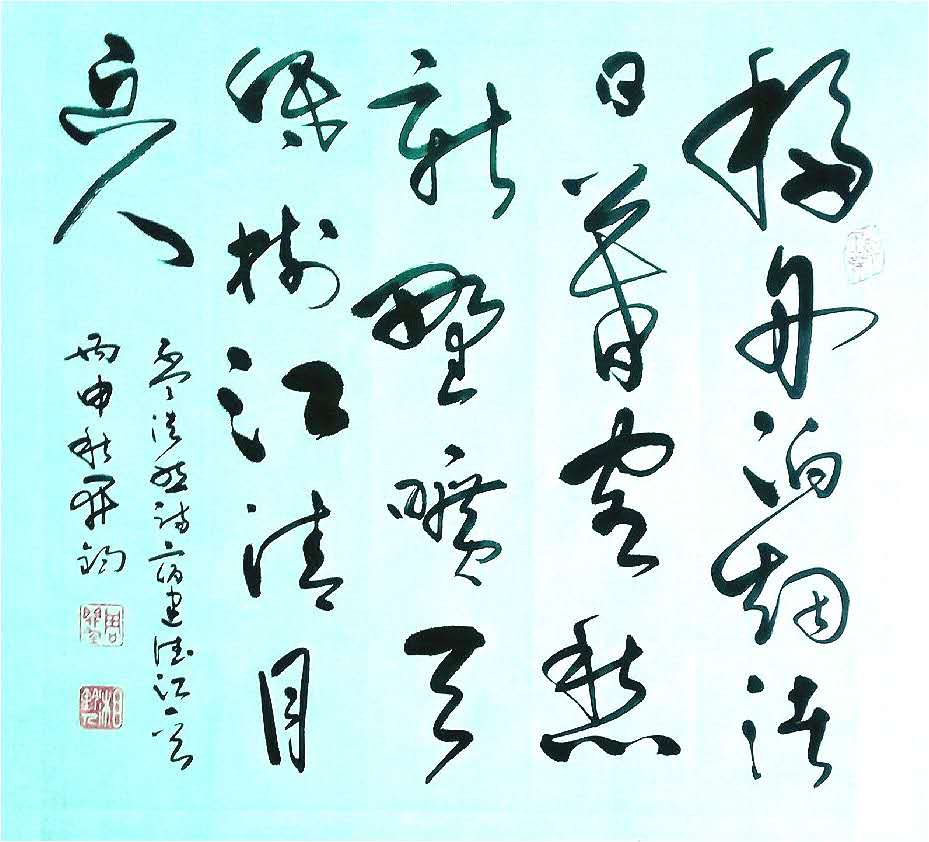 移舟泊烟渚
日暮客愁
新野曠天
低樹江清月
近人
孟浩然詩宿建德江一首
丙申秋鈞